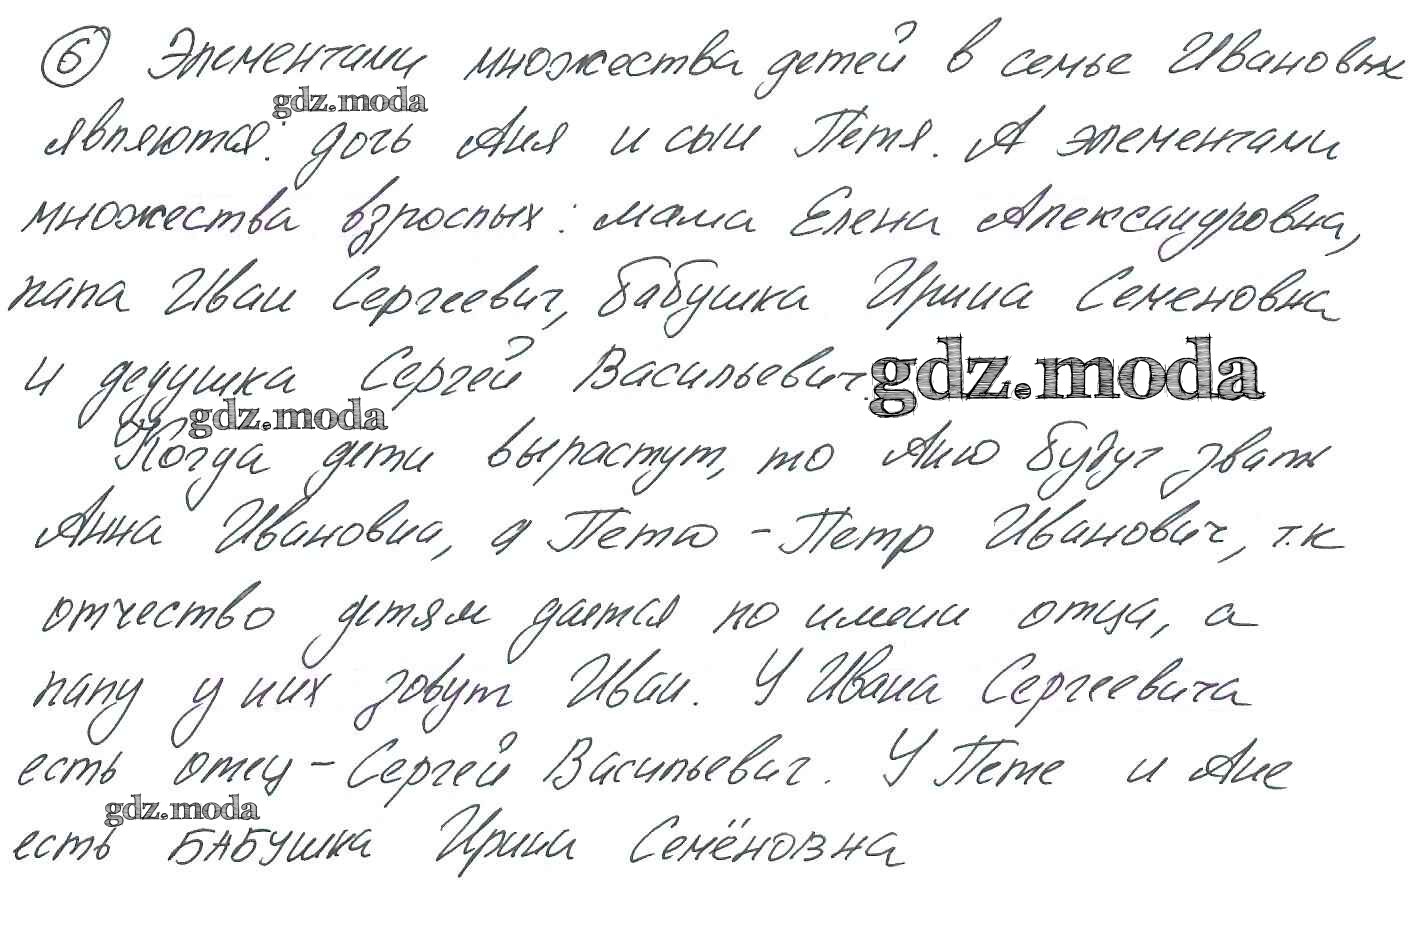 6 Элементами множества детей в семье Ивановых
gdz.moda
являются: дочь Аня и сын Петя. А элементами
множества взрослых: мама Елена Александровна,
папа Иван Сергеевич, бабушка Ирина Семеновна
и дедушка Сергей Васильевич. gdz.moda
gdz.moda
Когда дети вырастут, то Аню будут звать
Анна Ивановна, а Петю - Петр Иванович, т.к
отчество детям дается по имени отца, а
папу у них зовут Иван. У Ивана Сергеевича
есть отец - Сергей Васильевич. У Пете и Ане
gdz.moda
есть БАБУШКА Ирина Семёновна